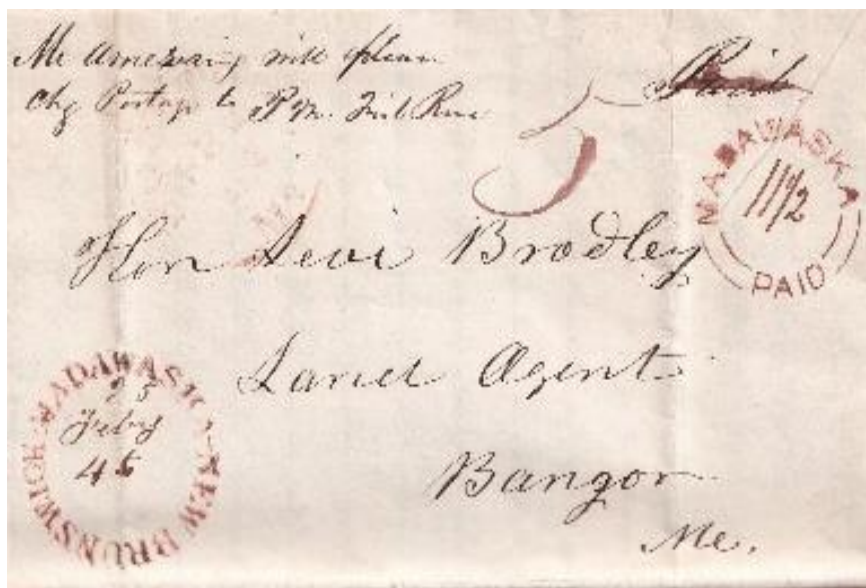 Mr Ameraing will please Paid
Chg Postage to P.M. Fish River
5
MADAWASKA
11½
PAID
Hon Levi Bradley
Land Agent
Bangor
Me.
MADAWASKA NEW BRUNSWICK
25
Feby
45